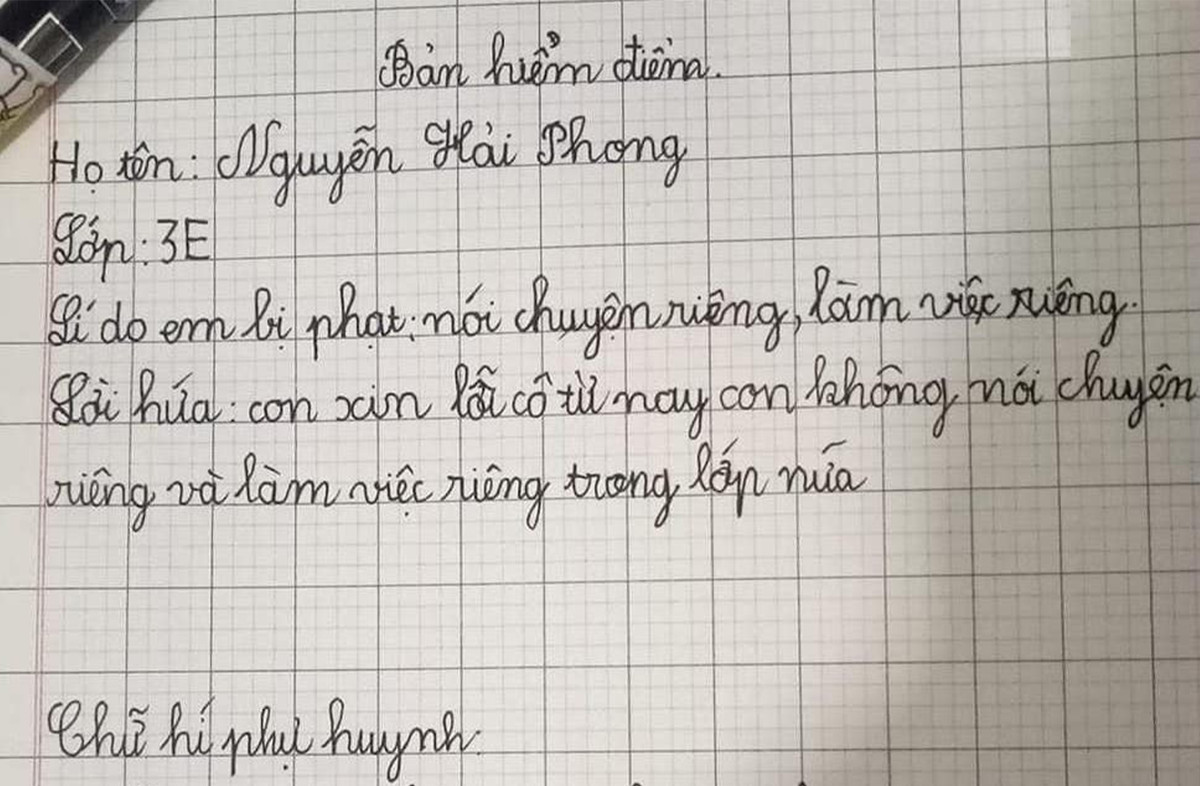 Bản hiểm điểm.
Họ tên: Nguyễn Hải Phong
Lớp: 3E
Lí do em bị phạt: nói chuyện riêng, làm việc riêng.
Lời hứa: con xin lỗi cô từ nay con không nói chuyện
riêng và làm việc riêng trong lớp nữa
Chữ hí phụ huynh: